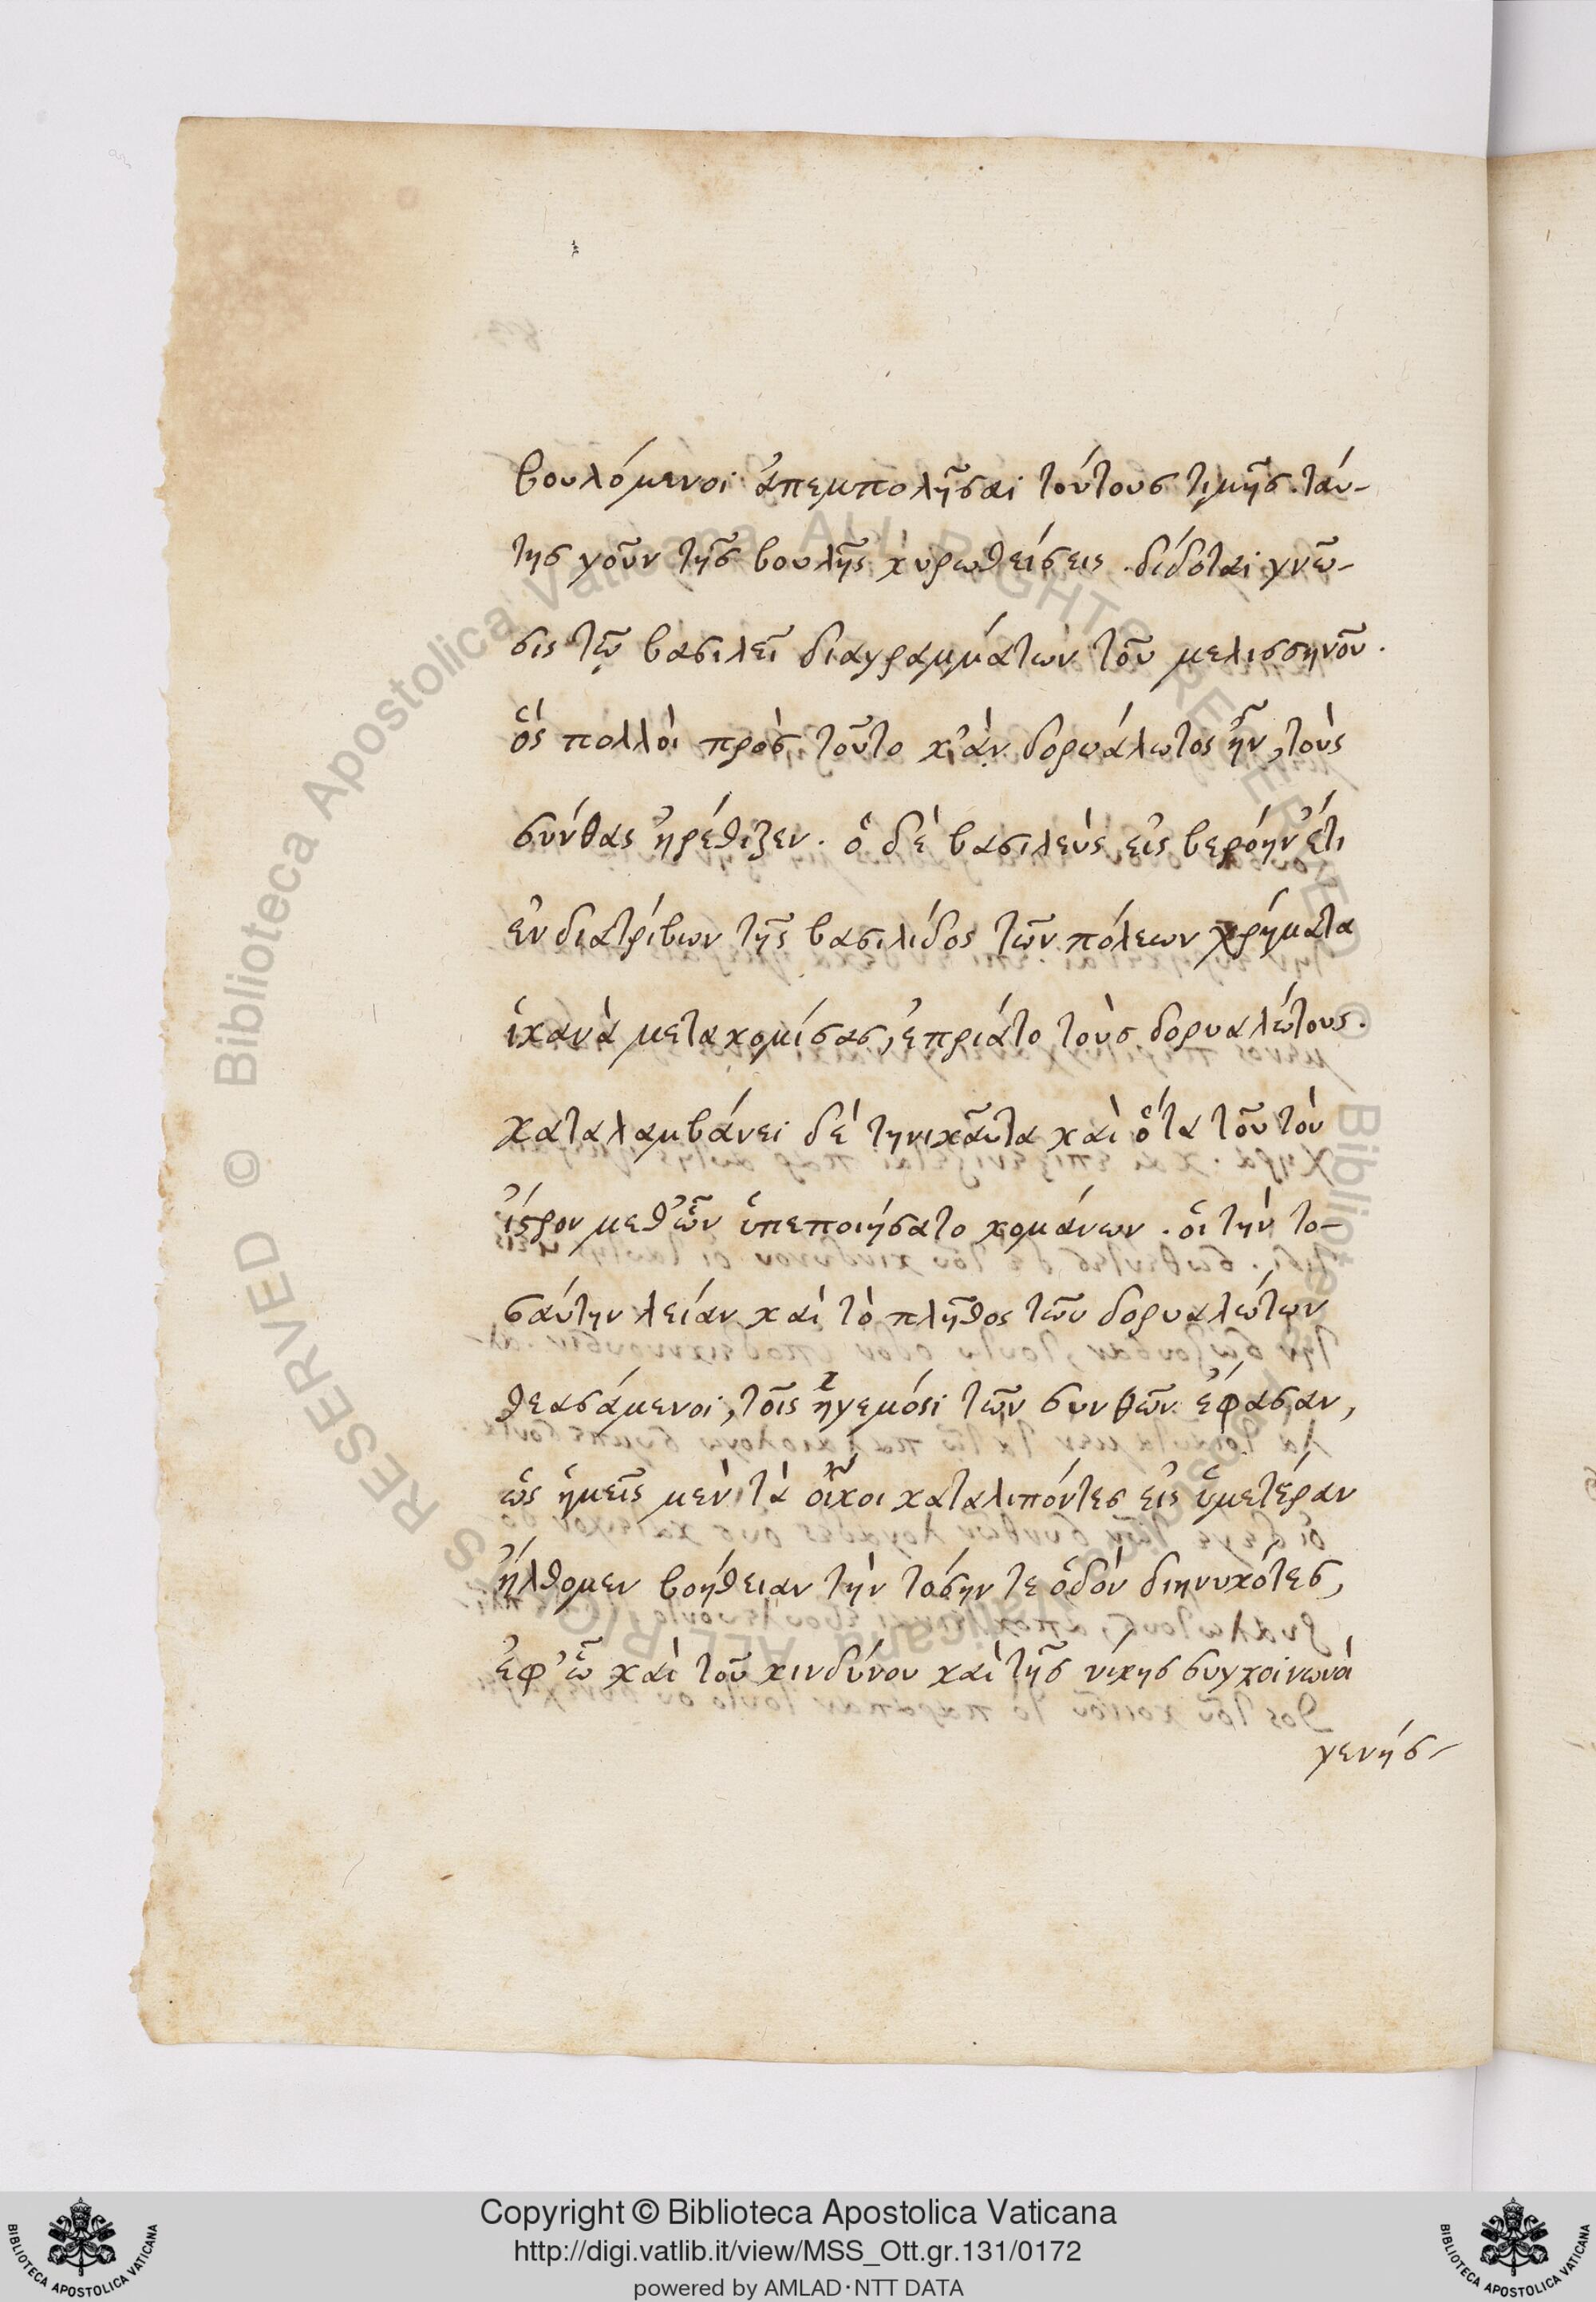 βουλόμενοι ἀπεμπολῆσαι τούτους τιμῆς. ταύ-
της γοῦν τῆς βουλῆς κυρωθείσεις. δίδοται γνῶ-
σις τῷ βασιλεῖ διαγραμμάτων τοῦ μελισσηνοῦ.
ὃς πολλοὶ πρὸς τοῦτο κἂν δορυάλωτος ἦν, τοὺς
σύνθας ἠρέθιζεν. ὁ δὲ βασιλεὺς εἰς βερόην ἔτι
ἐνδιατρίβων τῆς βασιλίδος τῶν πόλεων χρήματα
ἱκανὰ μετακομίσας, ἐπριάτο τοὺς δορυαλώτους.
καταλαμβάνει δὲ τηνικαῦτα καὶ ὁ τα τοῦ τὸν
ἴςρον μεθ' ὧν ὑπεποιήσατο κομάνων. οἱ τὴν το-
σαύτην λείαν καὶ τὸ πλῆθος τῶν δορυαλώτων
θεασάμενοι, τοῖς ἡγεμόσι τῶν συνθῶν ἔφασαν,
ὡς ἡμεῖς μὲν τὰ οἴκοι καταλιπόντες εἰς ὑμετέραν
ἤλθομεν βοήθειαν τὴν τόσην τε ὁδὸν διηνυκότες,
ἐφ' ᾧ καὶ τοῦ κινδύνου καὶ τῆς νίκης συγκοινωνὰ
γενήσ-
Copyright © Biblioteca Apostolica Vaticana
http://digi.vatlib.it/view/MSS_Ott.gr.131/0172
powered by AMLAD·NTT DATA
BIBLIOTECA APOSTOLICA VATICANA
BIBLIOTECA APOSTOLICA VATICANA
© Biblioteca Apostolica Vaticana ALL RIGHTS RESERVED
© Biblioteca Apostolica Vaticana ALL RIGHTS RESERVED